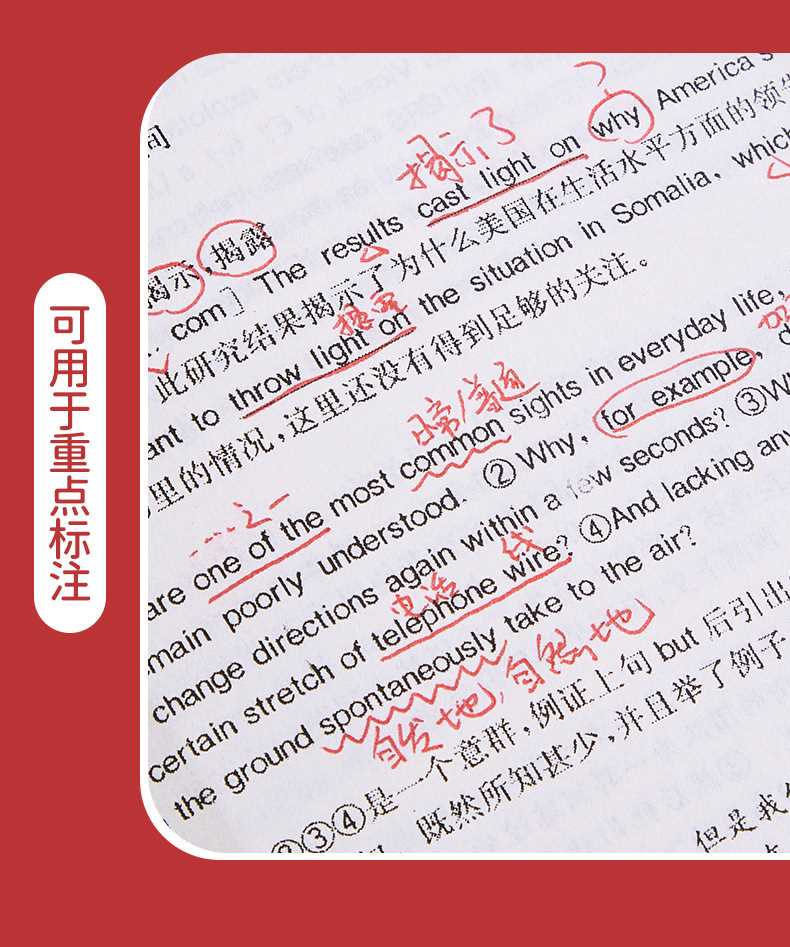 可用于重点标注
间
揭示了
The results cast light on why America's
揭示，揭露
com］
此研究结果揭示了为什么美国在生活水平方面的领先
ant to throw light on the situation in Somalia, which
里的情况，这里还没有得到足够的关注。
日常/普通
are one of the most common sights in everyday life,
main poorly understood. ② Why, for example,
change directions again within a few seconds? ③
电话 线
certain stretch of telephone wire? ④And lacking any
the ground spontaneously take to the air?
自发地，自然地
②③④是一个意群，例证上句 but 后引出
既然所知甚少，并且举了例子
但是我